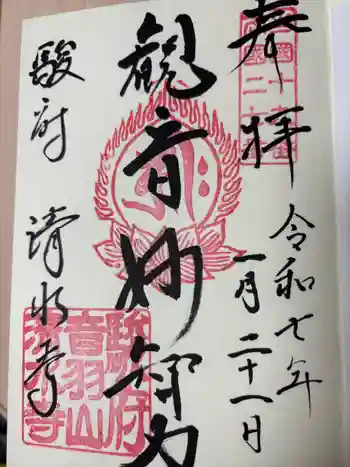 奉拝
令和七年
一月二十一日
観音妙智力
駿府 清水寺
駿府
音羽山
清水寺